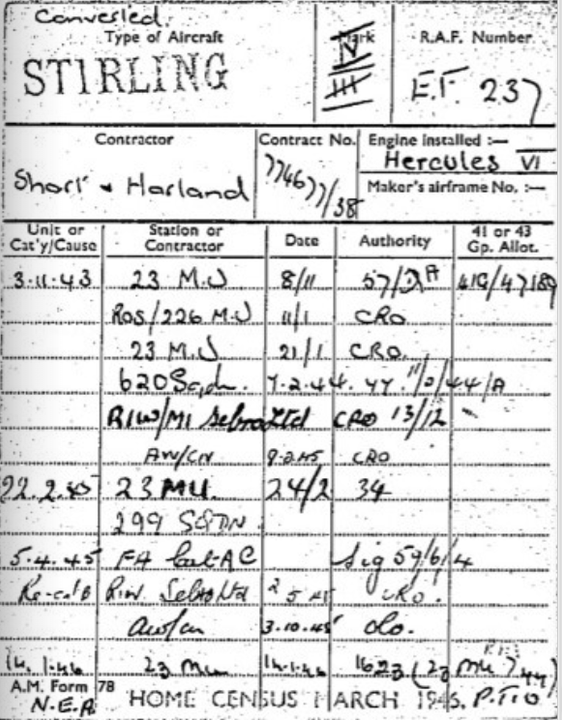 Converted.
Type of Aircraft
Mark
R.A.F. Number
STIRLING
V
III
E.F. 237
Contractor
Contract No.
Engine installed :—
Hercules VI
Short & Harland
774677/38
Maker's airframe No. :—
Unit or Cat'y/Cause
Station or Contractor
Date
Authority
41 or 43 Gp. Allot.
3.11.43 23 M.U 8/11 57/2A 41G/47189
ROS/226 M.U 11/1 CRO
23 M.U 21/1 CRO.
620 Sqdn. 7.2.44. 44.
RIW/MI Sebro Ltd CRO 13/12
AW/CN 9.2.45 CRO
22.2.45 23 MU. 24/2 34
299 SQDN
5.4.45 FA Cat AC Sig 59/6/4
Re-cat B R.I.W. Sebro Ltd 2 5 45 CRO.
aw/cn 3.10.45 do.
14.1.46 23 Mu 14.1.46 1623 (23 Mu 744)
A.M. Form 78 HOME CENSUS MARCH 1946. P.T.O
N.E.A